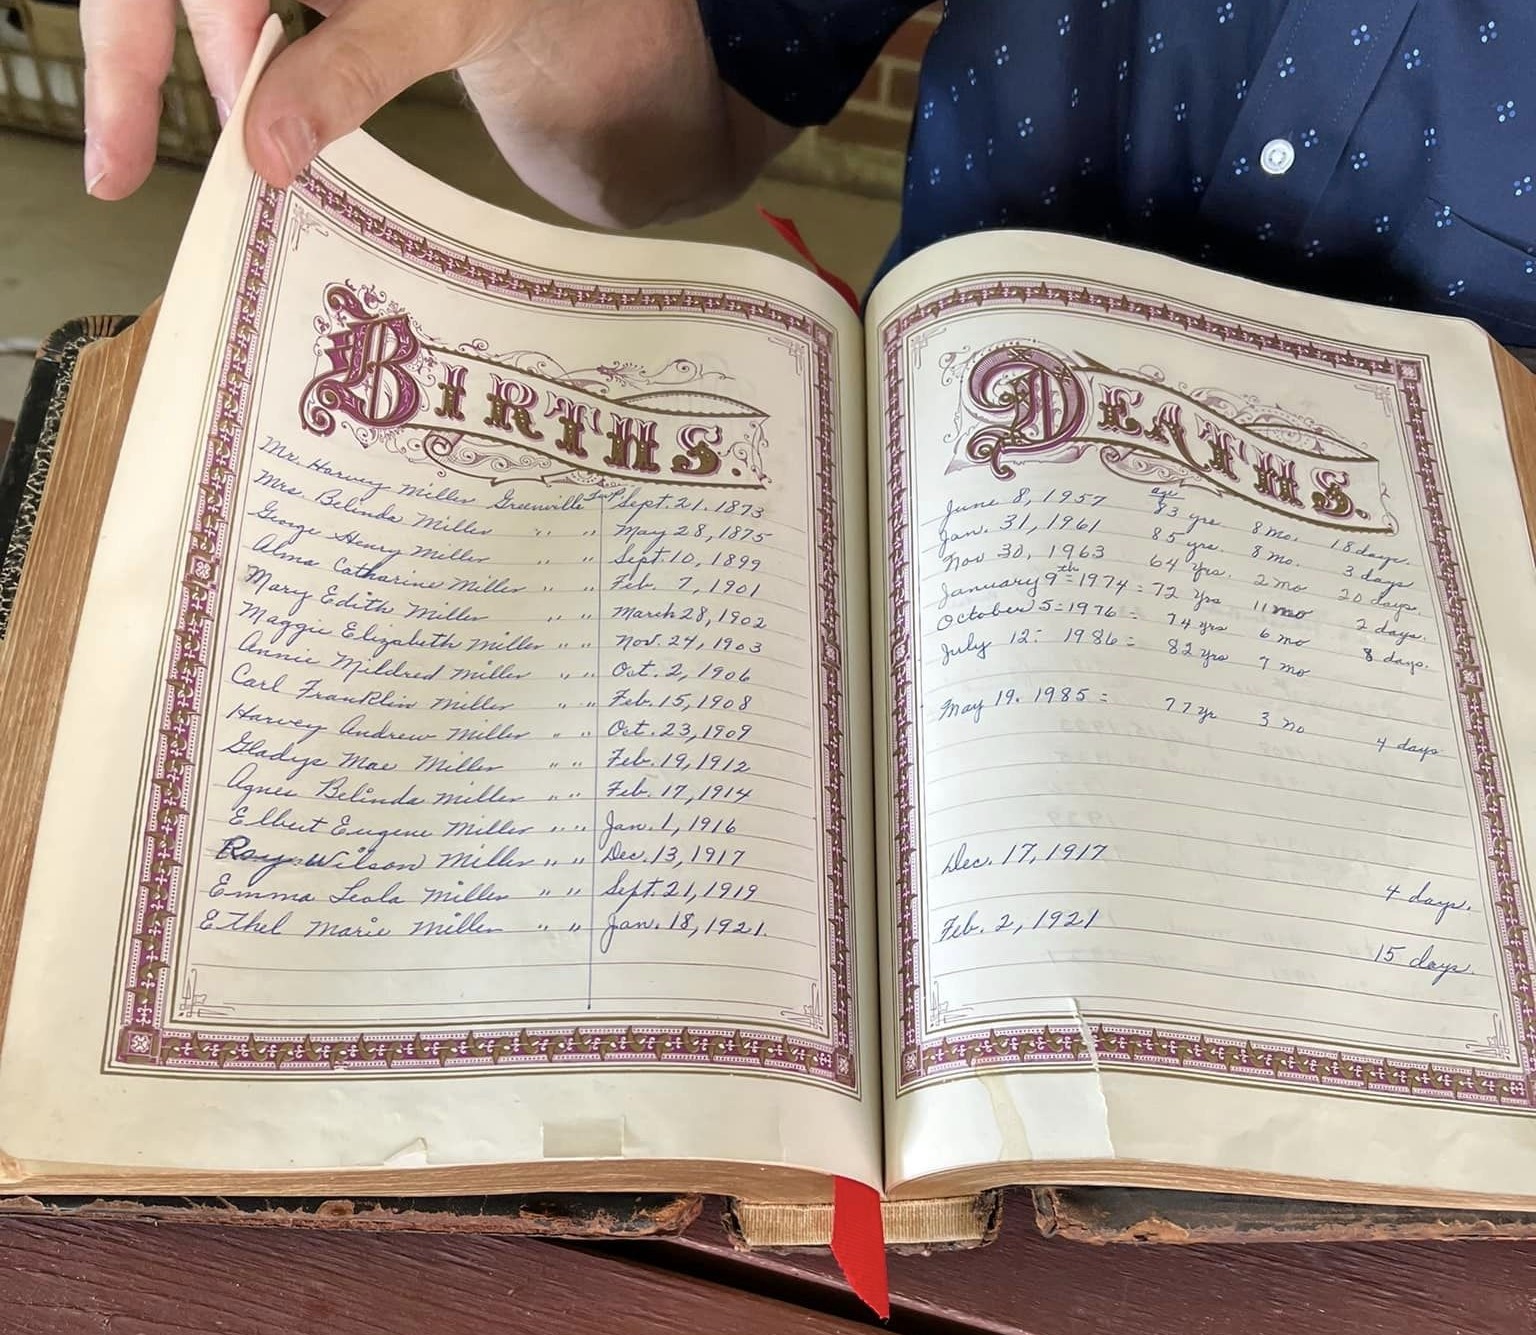 BIRTHS.
Mr. Harvey Miller Greenville Twp Sept. 21. 1873
Mrs. Belinda Miller " " May 28, 1875
George Henry Miller " " Sept. 10, 1899
Alma Catharine Miller " " Feb. 7, 1901
Mary Edith Miller " " March 28, 1902
Maggie Elizabeth Miller " " Nov. 24, 1903
Annie Mildred Miller " " Oct. 2, 1906
Carl Franklin Miller " " Feb. 15, 1908
Harvey Andrew Miller " " Oct. 23, 1909
Gladys Mae Miller " " Feb. 19, 1912
Agnes Belinda Miller " " Feb. 17, 1914
Elbert Eugene Miller " " Jan. 1, 1916
Ray Wilson Miller " " Dec. 13, 1917
Emma Leola Miller " " Sept. 21, 1919
Ethel Marie Miller " " Jan. 18, 1921.
DEATHS.
age
June 8, 1957 83 yrs 8 mo. 18 days.
Jan. 31, 1961 85 yrs. 8 mo. 3 days
Nov 30, 1963 64 yrs. 2 mo 20 days.
January 9th = 1974 = 72 yrs 11 mo 2 days.
October 5 = 1976 = 74 yrs 6 mo 8 days.
July 12 = 1986 = 82 yrs 7 mo
May 19. 1985 = 77 yr 3 mo 4 days
Dec. 17, 1917 4 days.
Feb. 2, 1921 15 days.